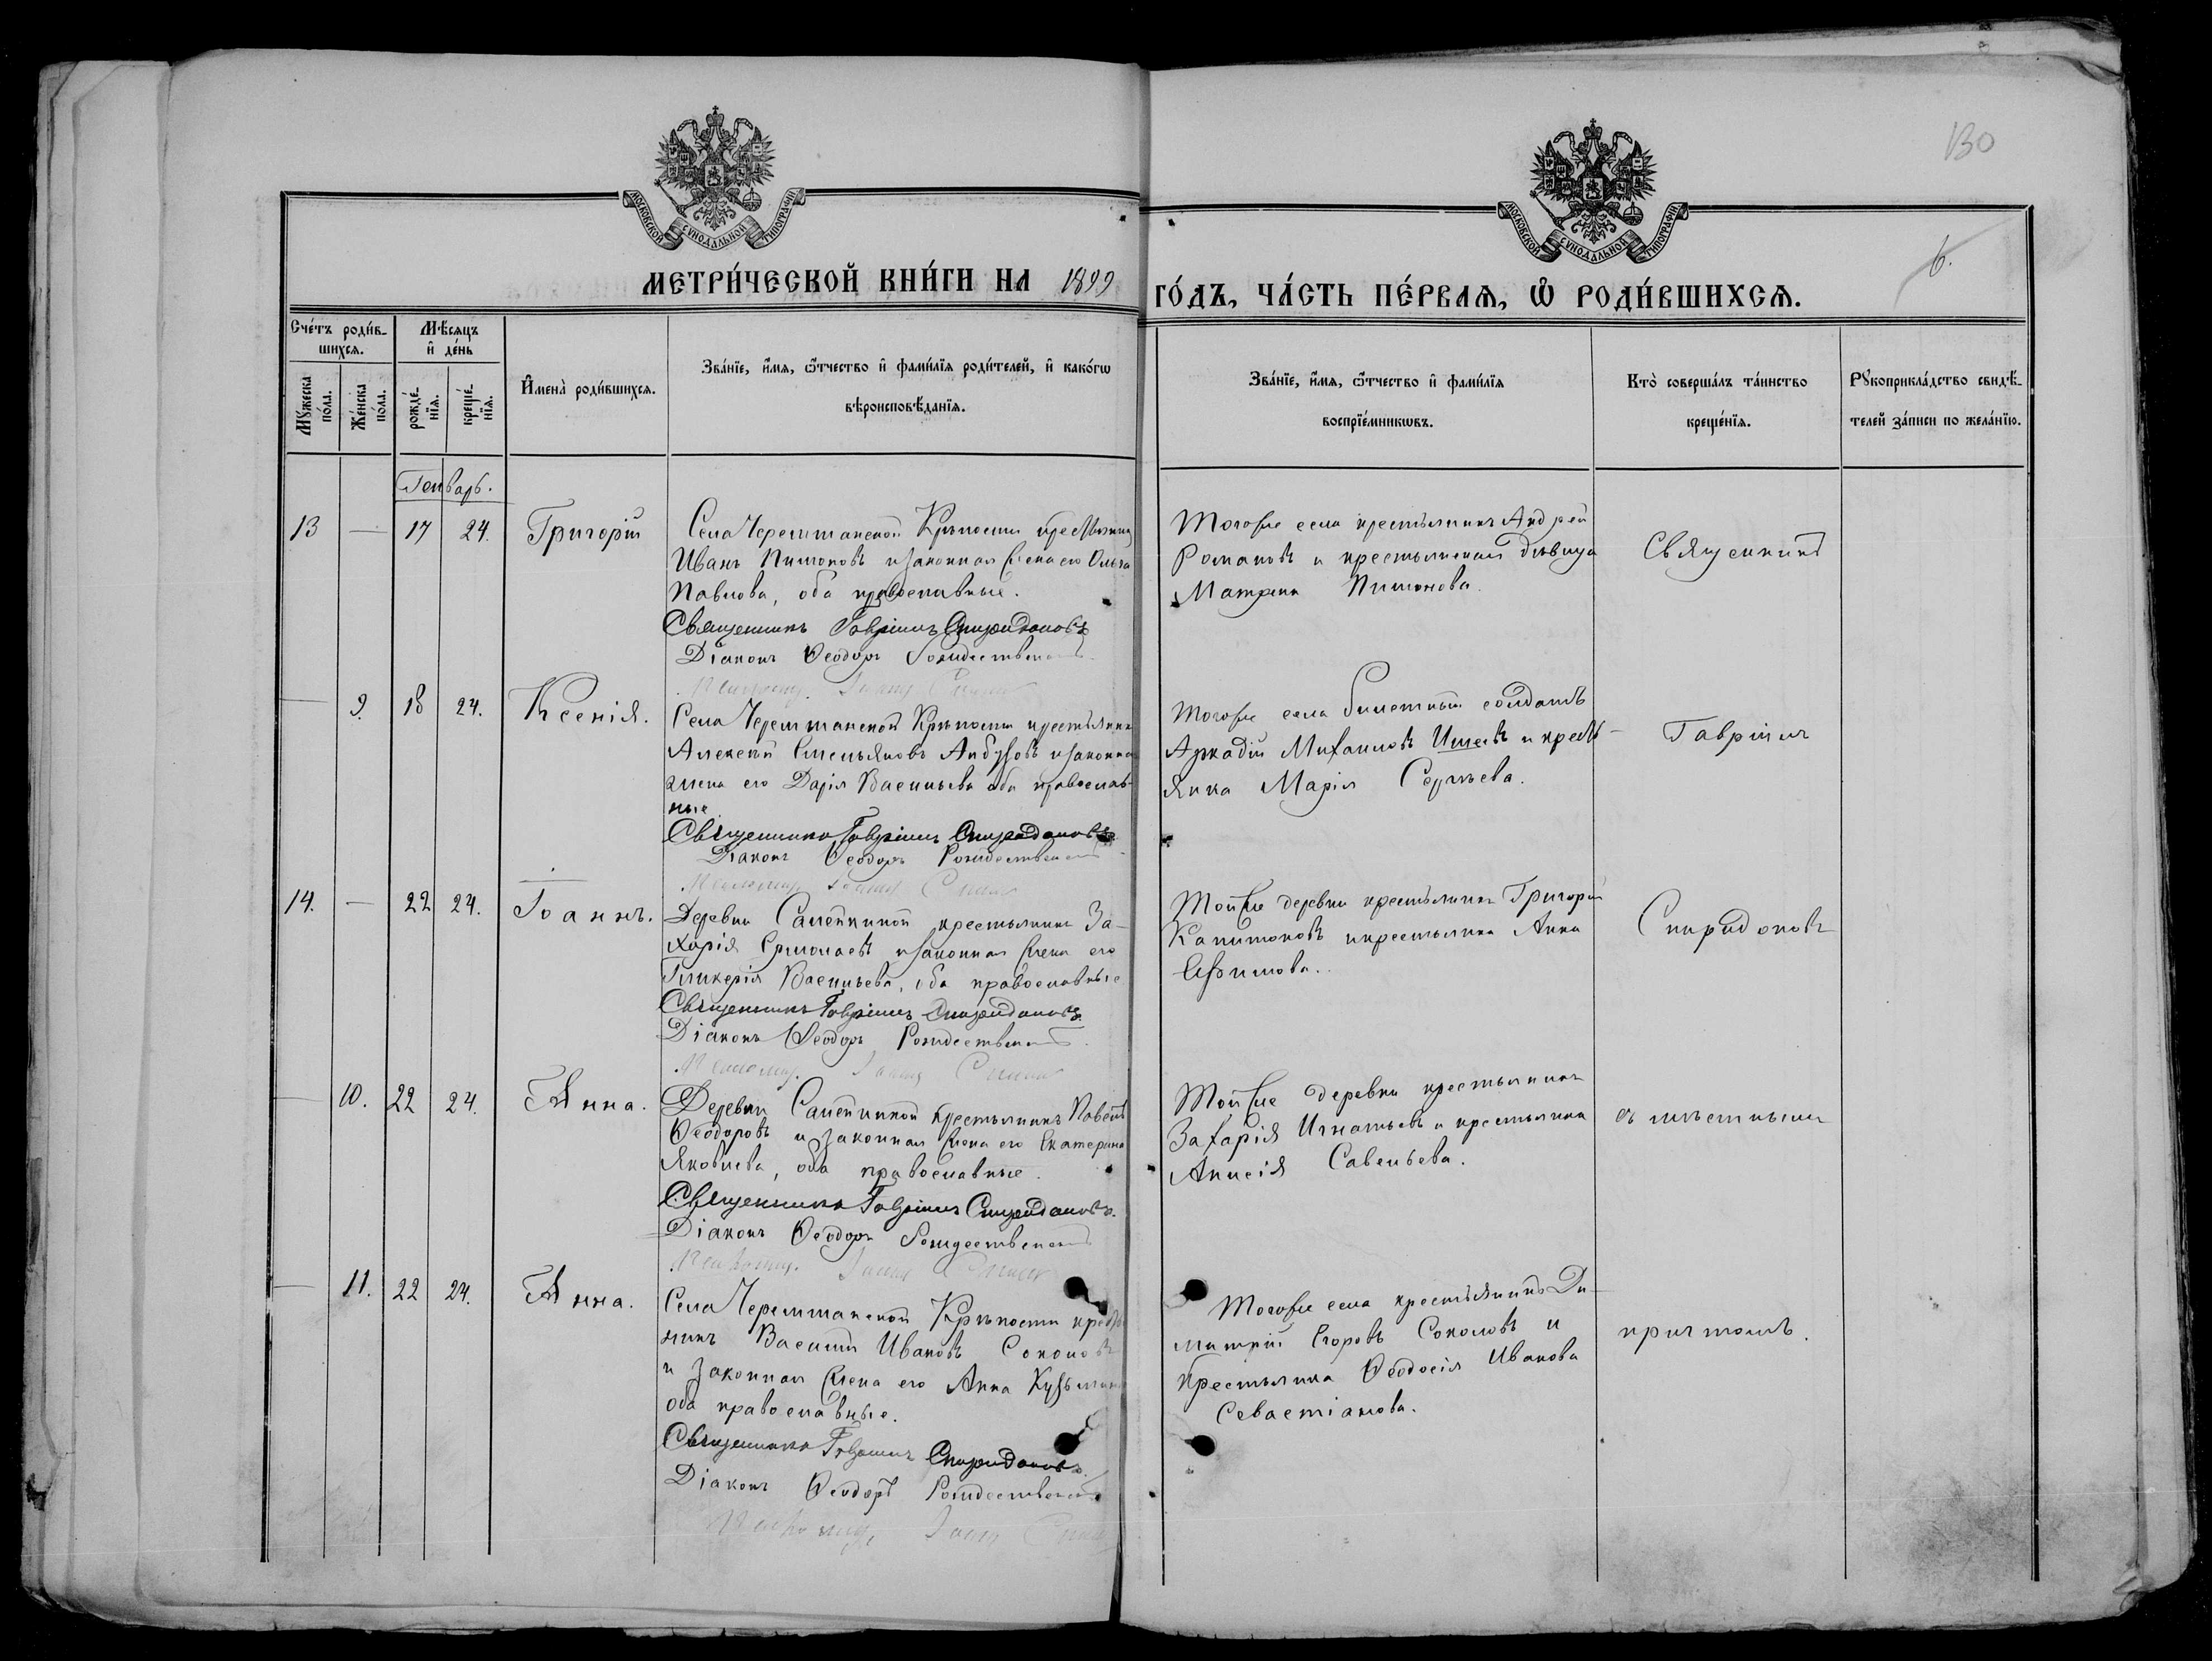 130
6.
МОСКОВСКОЙ СѴНОДАЛЬНОЙ ТИПОГРАФІИ
МОСКОВСКОЙ СѴНОДАЛЬНОЙ ТИПОГРАФІИ
МЕТРИ́ЧЕСКОЙ КНИ́ГИ НА 1899 ГО́ДЪ, ЧА́СТЬ ПЕ́РВАЯ, Ѽ РОДИ́ВШИХСЯ.
Сче́тъ роди́в-
шихся.
Мꙋжеска по́ла.
Же́нска по́ла.
Мѣ́сяцъ
и҆ де́нь
рожде́-
нїя.
креще́-
нїя.
И҆мена̀ роди́вшихся.
Зва́нїе, и҆́мя, ѻ҆́тчество и҆ фами́лїя роди́телей, и҆ како́гѡ
вѣроисповѣ́данїя.
Зва́нїе, и҆́мя, ѻ҆́тчество и҆ фами́лїя
воспрїе́мникѡвъ.
Кто̀ соверша́лъ та́инство
креще́нїя.
Рꙋкоприкла́дство свидѣ́-
телей за́писи по жела́нїю.
Генварь.
13 — 17 24. Григорій
Села Черемшанской Крѣпости крестьянинъ
Иванъ Пимоновъ и законная жена его Ольга
Павлова, оба православные.
Священникъ Гавріилъ Спиридоновъ
Діаконъ Ѳеодоръ Рождественскій
Псаломщ. Іоаннъ
Тогоже села крестьянинъ Андрей
Романовъ и крестьянская дѣвица
Матрена Пимонова.
Священникъ
— 9. 18 24. Ксенія.
Села Черемшанской Крѣпости крестьянинъ
Алексѣй Емельяновъ Арбузовъ и законная
жена его Дарія Васильева оба православ-
ные
Священникъ Гавріилъ Спиридоновъ
Діаконъ Ѳеодоръ Рождественскій
Псаломщ. Іоаннъ
Тогоже села билетный солдатъ
Аркадій Михаиловъ и кресть-
янка Марія Сергѣева.
Гавріилъ
14. — 22 24. Іоаннъ.
Деревни Салейкиной крестьянинъ За-
харія Ермолаевъ и законная жена его
Гликерія Васильева, оба православные
Священникъ Гавріилъ Спиридоновъ
Діаконъ Ѳеодоръ Рождественскій
Псаломщ. Іоаннъ
Тойже деревни крестьянинъ Григорій
Капитоновъ и крестьянка Анна
Ефимова.
Спиридоновъ
— 10. 22 24. Анна.
Деревни Салейкиной крестьянинъ Павелъ
Ѳеодоровъ и законная жена его Екатерина
Яковлева, оба православные.
Священникъ Гавріилъ Спиридоновъ.
Діаконъ Ѳеодоръ Рождественскій
Псаломщ. Іоаннъ
Тойже деревни крестьянинъ
Захарія Игнатьевъ и крестьянка
Анисія Савельева.
съ мѣстнымъ
— 11. 22 24. Анна.
Села Черемшанской Крѣпости кресть
нинъ Василій Ивановъ Соколовъ
и законная жена его Анна Кузьмина
оба православные.
Священникъ Гавріилъ Спиридоновъ.
Діаконъ Ѳеодоръ Рождественскій
Псаломщ. Іоаннъ
Тогоже села крестьянинъ Ди-
митрій Егоровъ Соколовъ и
крестьянка Ѳеодосія Иванова
Севастіанова.
причтомъ.